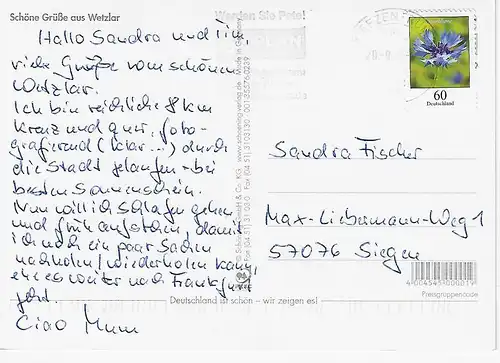 Schöne Grüße aus Wetzlar
Hallo Sandra und Tim,
viele Grüße vom schönen
Wetzlar.
Ich bin reichliche 8 km
kreuz und quer, foto-
grafierend (klar...) durch
die Stadt gelaufen - bei
bestem Sonnenschein.
Nun will ich schlafen gehen
und früh aufstehen, damit
ich noch ein paar Sachen
nachholen/wiederholen kann,
ehe es weiter nach Frankfurt
geht.
Ciao Mum
Werden Sie Pate!
60
Deutschland
Sandra Fischer
Max-Liebermann-Weg 1
57076 Siegen
Preisgruppencode
Deutschland ist schön – wir zeigen es!